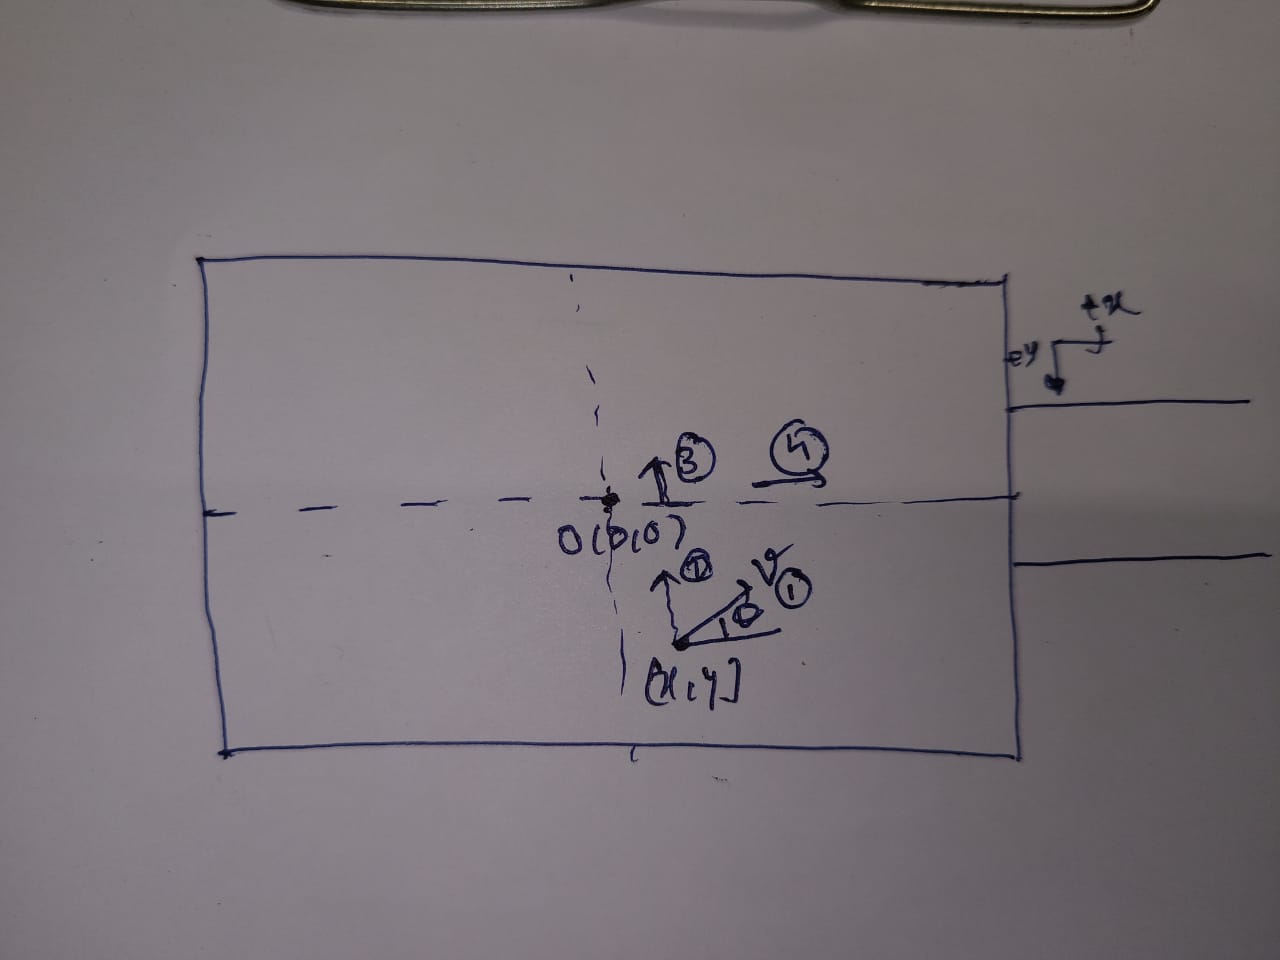 +x
+y
4
3
O(0,0)
2
V
1
θ
(x,y]